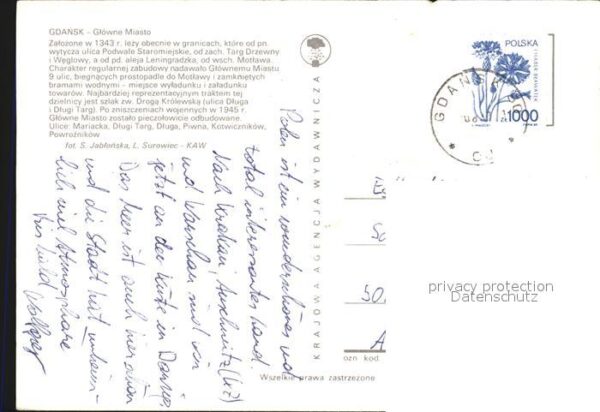 GDAŃSK – Główne Miasto
Założone w 1343 r. leży obecnie w granicach, które od pn.
wytycza ulica Podwale Staromiejskie, od zach. Targ Drzewny
i Węglowy, a od pd. aleja Leningradzka, od wsch. Motława.
Charakter regularnej zabudowy nadawało Głównemu Miastu
9 ulic, biegnących prostopadle do Motławy i zamkniętych
bramami wodnymi – miejsce wyładunku i załadunku
towarów. Najbardziej reprezentacyjnym traktem tej
dzielnicy jest szlak zw. Drogą Królewską (ulica Długa
i Długi Targ). Po zniszczeniach wojennych w 1945 r.
Główne Miasto zostało pieczołowicie odbudowane.
Ulice: Mariacka, Długi Targ, Długa, Piwna, Kotwiczników,
Powroźników
fot. S. Jabłońska, L. Surowiec – KAW
Polen ist ein wunderschönes und
total interessantes Land.
Nach Krakau, Auschwitz
und Warschau sind wir
jetzt an der Küste in Danzig.
Das Meer ist auch hier schön
und die Stadt hat unheim-
lich viel Atmosphäre
Bis bald
KRAJOWA AGENCJA WYDAWNICZA
POLSKA
1000
GDAŃSK
50
A
ozn. kod
Wszelkie prawa zastrzeżone
privacy protection
Datenschutz